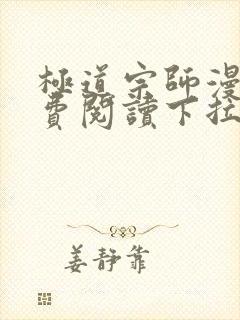 極道宗師漫
費閱讀下拉
姜靜靠